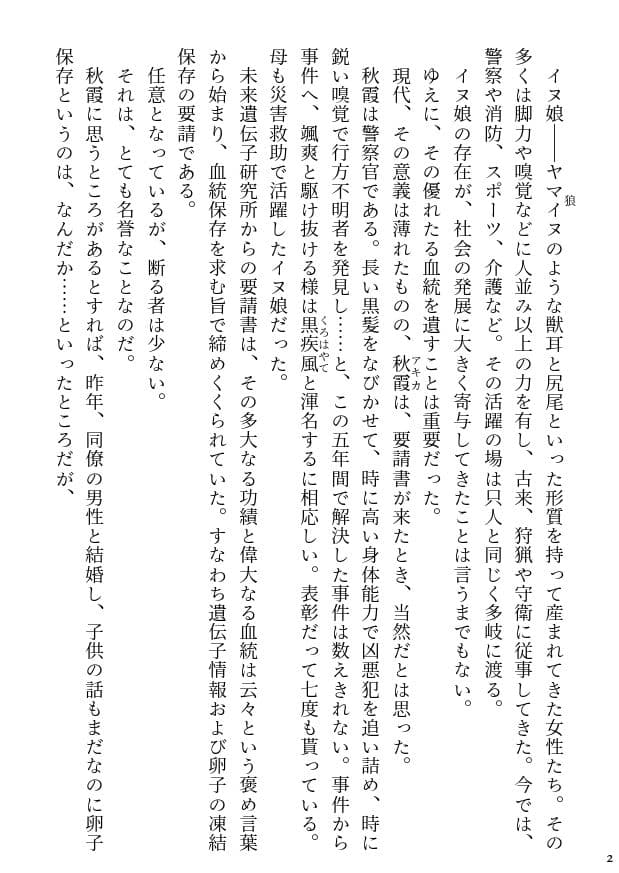 イヌ娘――ヤマイヌのような獣耳と尻尾といった形質を持って産まれてきた女性たち。その
狼
多くは脚力や嗅覚などに人並み以上の力を有し、古来、狩猟や守衛に従事してきた。今では、
警察や消防、スポーツ、介護など。その活躍の場は只人と同じく多岐に渡る。
イヌ娘の存在が、社会の発展に大きく寄与してきたことは言うまでもない。
ゆえに、その優れたる血統を遺すことは重要だった。
現代、その意義は薄れたものの、秋霞は、要請書が来たとき、当然だとは思った。
アキカ
秋霞は警察官である。長い黒髪をなびかせて、時に高い身体能力で凶悪犯を追い詰め、時に
鋭い嗅覚で行方不明者を発見し……と、この五年間で解決した事件は数えきれない。事件から
事件へ、颯爽と駆け抜ける様は黒疾風と渾名するに相応しい。表彰だって七度も貰っている。
くろはやて
母も災害救助で活躍したイヌ娘だった。
未来遺伝子研究所からの要請書は、その多大なる功績と偉大なる血統は云々という褒め言葉
から始まり、血統保存を求む旨で締めくくられていた。すなわち遺伝子情報および卵子の凍結
保存の要請である。
任意となっているが、断る者は少ない。
それは、とても名誉なことなのだ。
秋霞に思うところがあるとすれば、昨年、同僚の男性と結婚し、子供の話もまだなのに卵子
保存というのは、なんだか……といったところだが、
2